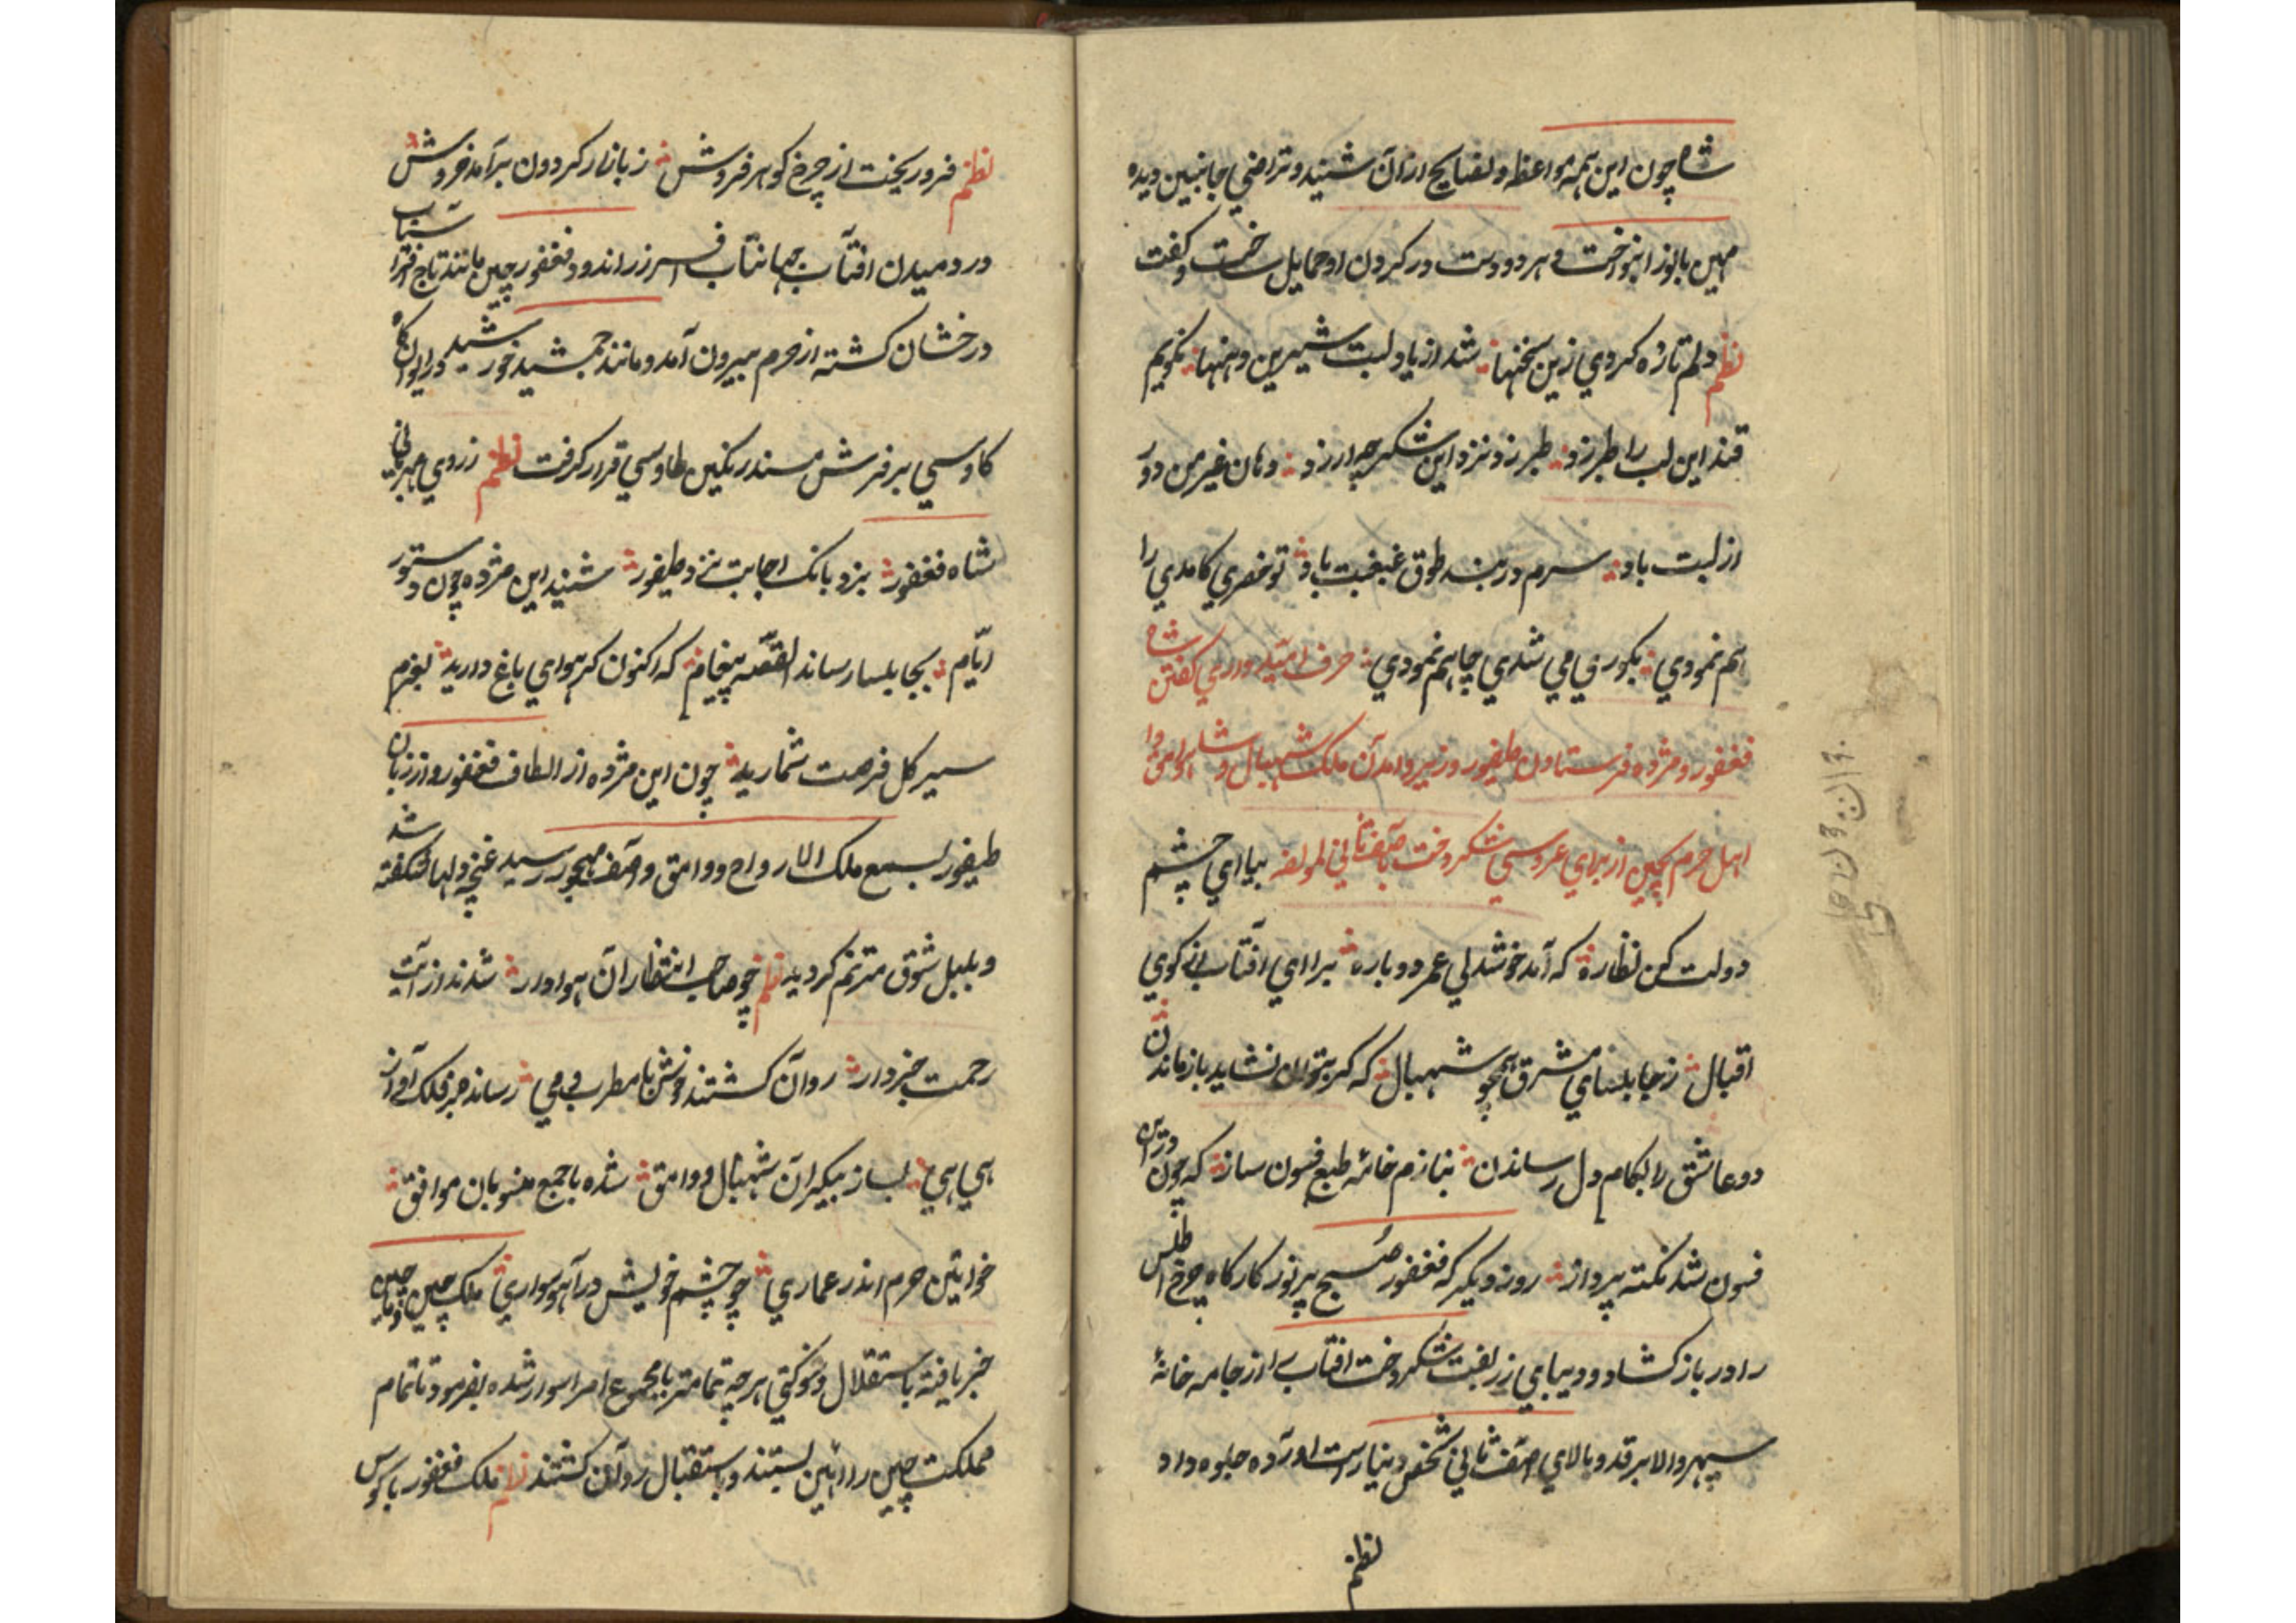 شاه چون این همه مواعظ و نصایح ازان شنید و تراضی جانبین دیده
مهین بانو را بنواخت و هر دو دست در گردن او حمایل ساخت و گفت
نظم دلم تازه کردی ازین سخنها شد از یاد لبت شیرین دهنها نگویم
قند این لب را طبرزد طبرزد نزد این شکر چه ارزد دهان غیر من دور
از لبت باد سرم در بند طوق غبغبت باد تو خضری کامدی را
هم نمودی بکوری می شدی چاهم نمودی حرف امیدواری گفتن شاه
فغفور و مژده فرستادن طیفور وزیر و امدن ملک شهبال و شاه وامق با
اهل حرم بچین از برای عروسی شکردخت باصف ثانی لمولفه بیا ای چشم
دولت کن نظاره که آمد خوشدلی عمر دوباره برا ای آفتاب از کوی
اقبال زجابلسای مشرق همچو شهبال که گر بتوان نشاید باز ماندن
دو عاشق را بکام دل رساندن بنازم خامه طبع فسون ساز که چون درین
فسون شد نکته پرداز روز دیگر که فغفور صبح پرنور کارگاه چرخ اطلس
را در باز کشاد و دیبای زربفت شکردخت افتاب را از جامه خانه
سپهر والا بر قد و بالای اصف ثانی شخص دنیا راست اورده جلوه داد
نظم
نظم فرو ریخت از چرخ گوهر فروش ز بازار گردون برآمد خروش
در دمیدن افتاب جهانتاب افسر زراندود فغفور چین مانند تاج افتاب
درخشان گشته از حرم بیرون آمد و مانند جمشید خورشید در ایوان
کاوسی بر فرش مسند رنگین طاوسی قرار گرفت نظم ز روی مهربانی
شاه فغفور بزد بانک اجابت نزد طیفور شنید این مژده چون دستور
ایام بجابلسا رساند القصه پیغام که اکنون گر هوای باغ دارید بعزم
سیر گل فرصت شمارید چون این مژده از الطاف فغفور و از زبان
طیفور بسمع ملک الارواح و وامق و اصف مهجور رسید غنچه دلها شکفته شد
و بلبل شوق مترنم گردید نظم چو صاحب انتظاران هوادار شدند از آیت
رحمت خبردار روان گشتند خوش با مطرب و می رساند بر فلک آواز
هی هی بساز بیکران شهبال و وامق شده با جمع منسوبان موافق
خواتین حرم اندر عماری چو چشم خویش در آهو سواری ملک چین
خبر یافته باستقلال و شوکتی هر چه تمامتر با مجموع امرا سوار شده بفرمود تا تمام
مملکت چین را آئین بستند و باستقبال روان گشتند نظم ملک فغفور با کوس